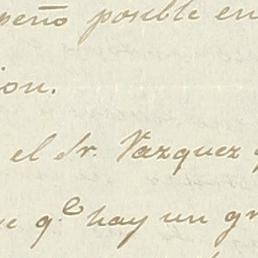 peño posible en
ion.
el Sr. Vazquez q
e q.e hay un gr